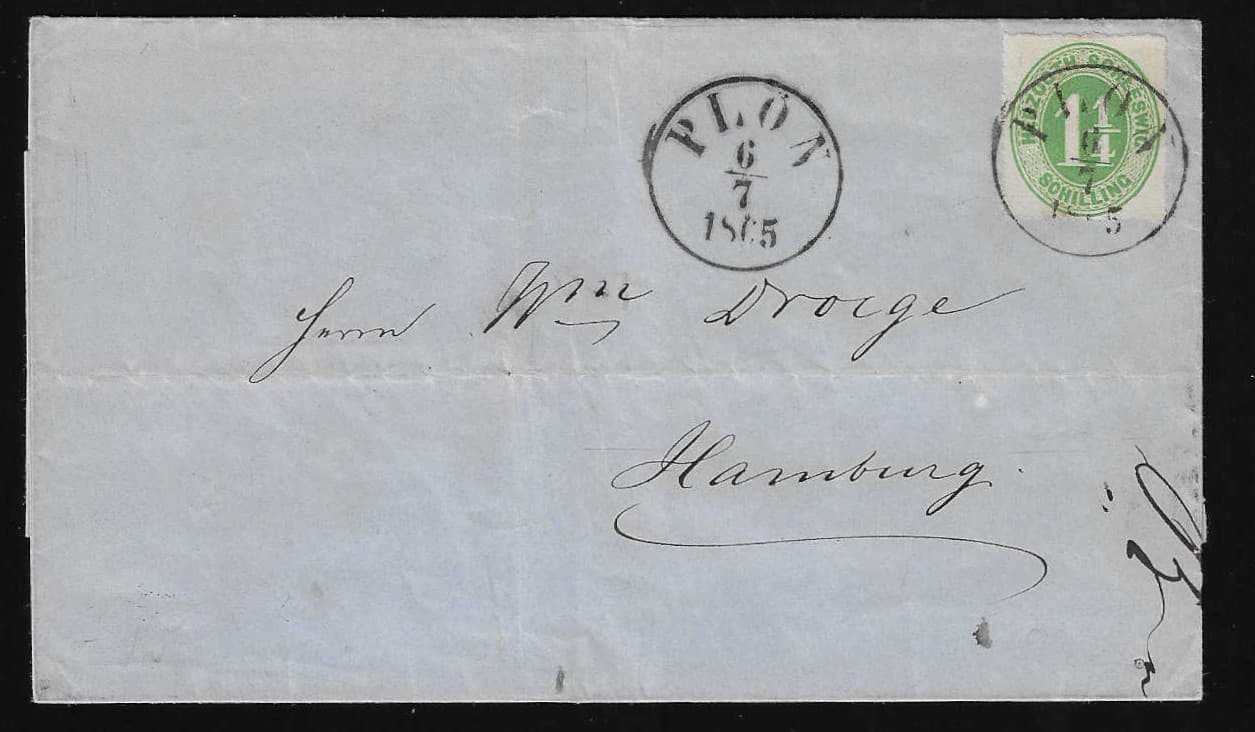 PLÖN
6
7
1865
HERZOGTH. SCHLESWIG
1 1/4
SCHILLING
PLÖN
6
7
1865
Herrn Wm Droege
Hamburg.